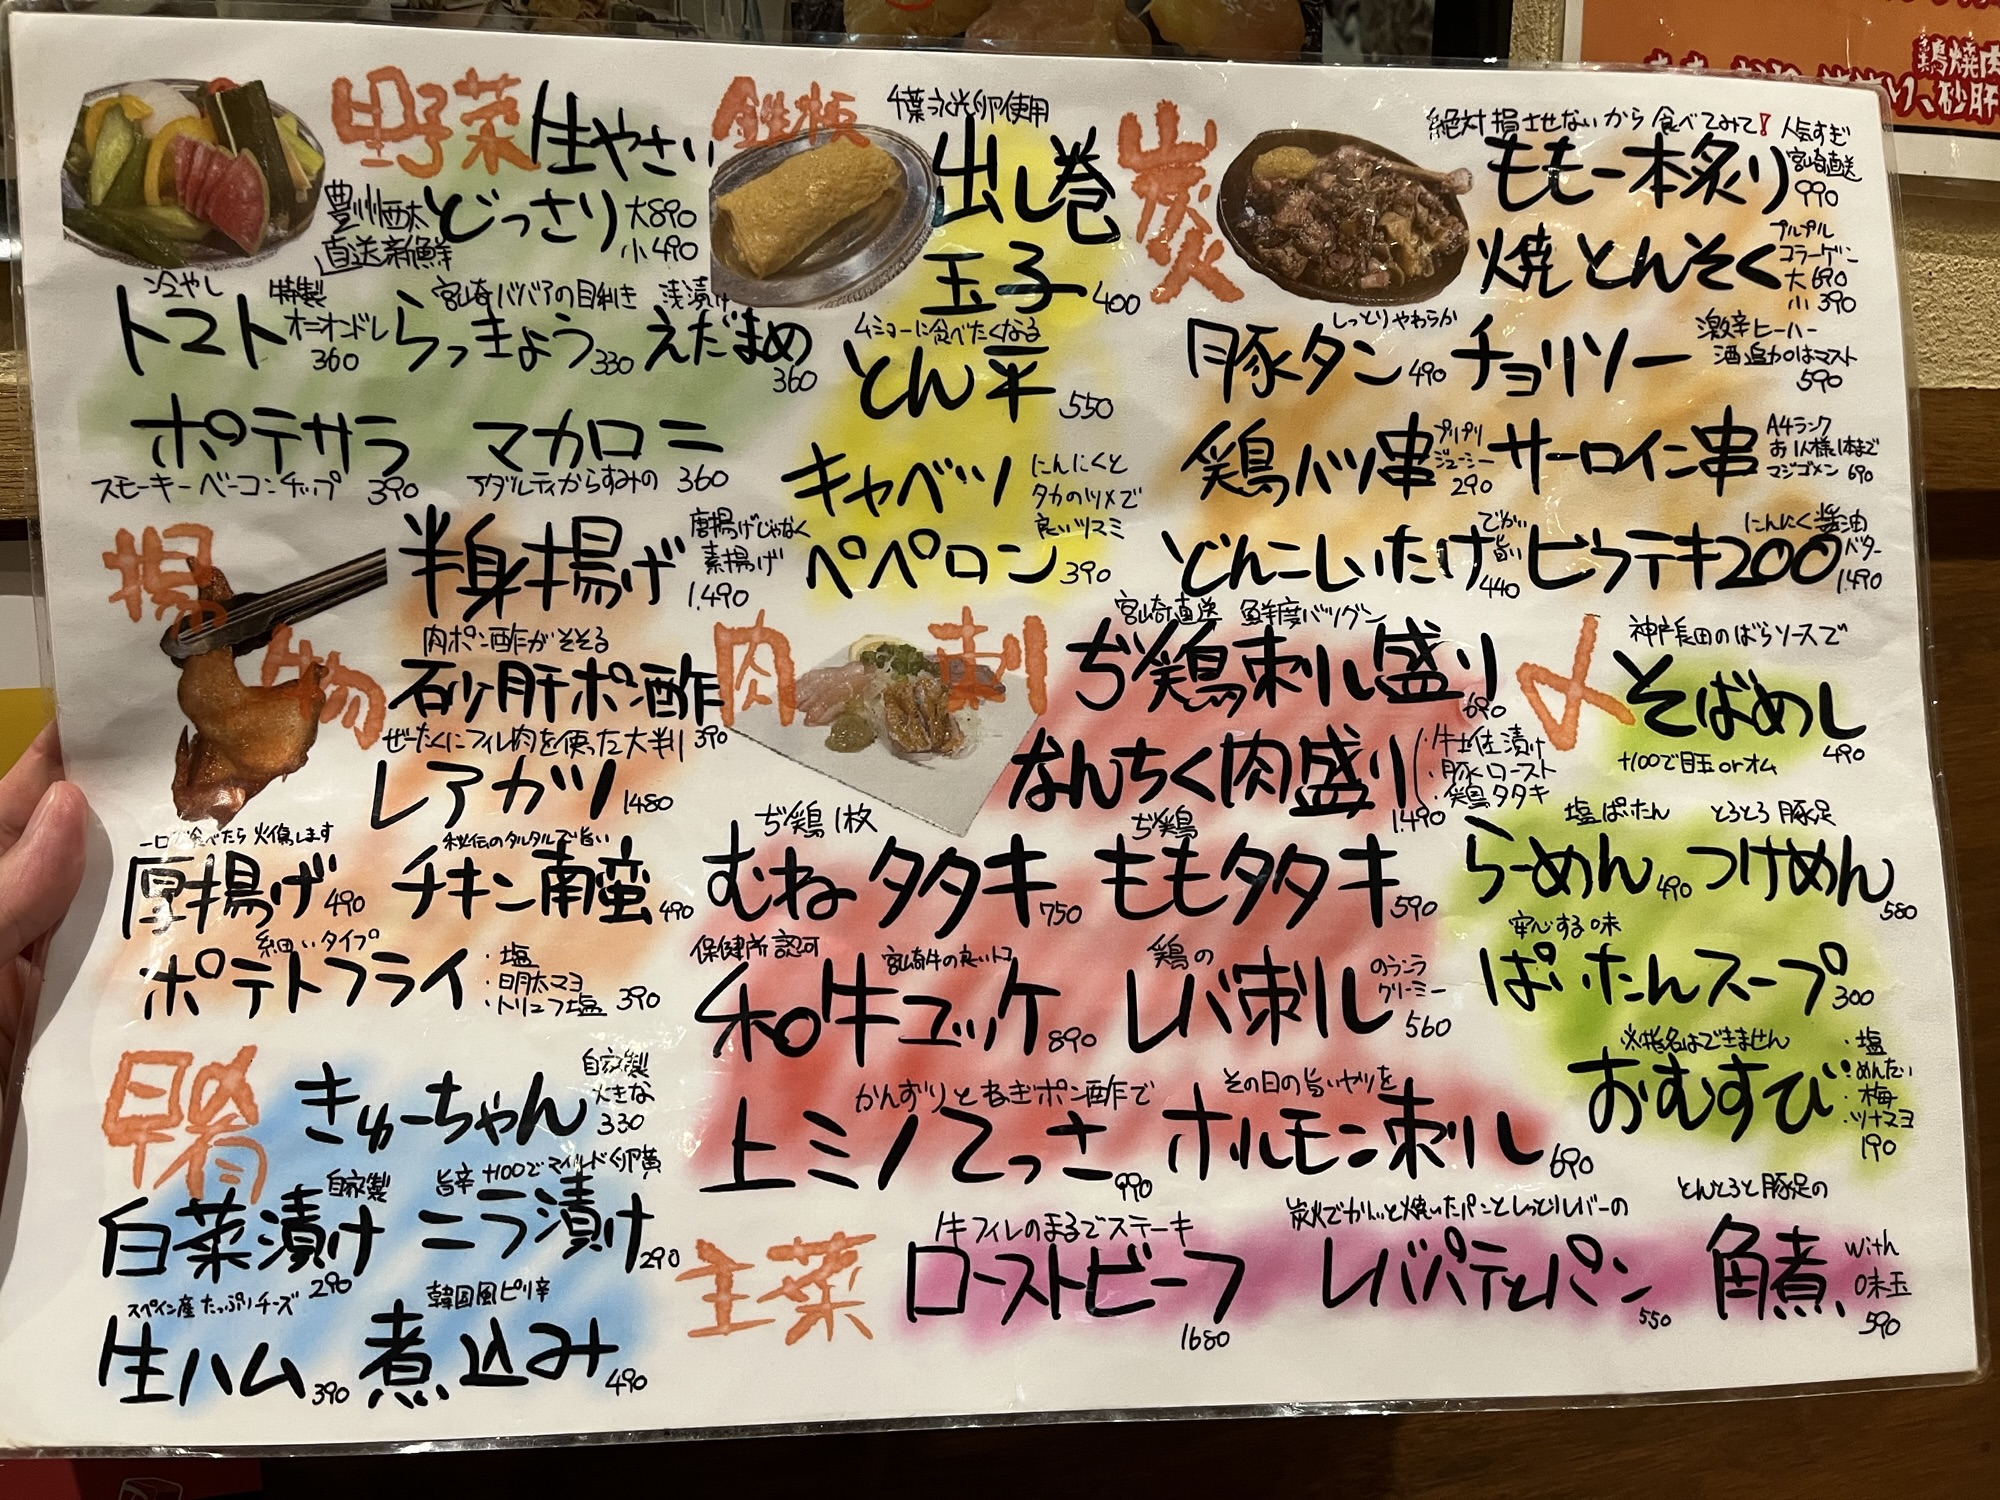 野菜
生やさい
どっさり
直送新鮮
大890
小490
冷やし
トマト
特製
オニオンドレ
360
らっきょう
330
宮崎ババアの目利き 浅漬け
えだまめ
360
ポテサラ
スモーキーベーコンチップ 390
マカロニ
アダルティからすみの 360
鉄板
千葉 卵使用
出し巻
玉子
400
ムショーに食べたくなる
とん平
550
キャベツ
ペペロン
にんにくと
タカのツメで
良いツマミ
390
炭火
絶対損させないから食べてみて!
もも一本炙り
人気すぎ
宮崎直送
990
焼とんそく
プルプル
コラーゲン
大690
小390
しっとりやわらか
豚タン
490
チョリソー
激辛ヒーハー
酒追加はマスト
590
鶏ハツ串
プリプリ
ジューシー
290
サーロイン串
A4ランク
お1人様1本まで
マジゴメン 690
どんこしいたけ
でかい
旨い
440
ビフテキ200
にんにく醤油
バター
1.490
揚物
半身揚げ
唐揚げじゃなく
素揚げ
1.490
肉ポン酢がそそる
砂肝ポン酢
390
ぜーたくにフィレ肉を使った大判
レアカツ
1480
一口で食べたら火傷します
厚揚げ
490
秘伝のタルタルで旨い
チキン南蛮
490
細いタイプ
ポテトフライ
・塩
・明太マヨ
・トリュフ塩
390
肉刺
宮崎直送 鮮度バツグン
ぢ鶏刺し盛り
690
なんちく肉盛り
・牛土佐漬け
・豚ロースト
・鶏タタキ
1.490
ぢ鶏1枚
むねタタキ
750
ぢ鶏
ももタタキ
590
保健所認可
宮崎牛の良いトコ
和牛ユッケ
890
鶏の
レバ刺し
クリーミー
560
かんずりとねぎポン酢で
上ミノてっさ
990
その日の旨いヤツを
ホルモン刺し
690
〆
神戸長田のばらソースで
そばめし
490
+100で目玉orオム
塩ぱいたん
らーめん
490
とろとろ豚足
つけめん
580
安心する味
ぱいたんスープ
300
※指名はできません
おむすび
・塩
・めんたい
・梅
・ツナマヨ
190
早肴
きゅーちゃん
自家製
大きな
330
自家製
白菜漬け
290
旨辛 +100でマイルド卵黄
ニラ漬け
290
スペイン産たっぷりチーズ
生ハム
390
韓国風ピリ辛
煮込み
490
主菜
牛フィレのまるでステーキ
ローストビーフ
1680
炭火でカリッと焼いたパンとしっとりレバーの
レバパテとパン
550
とんとろと豚足の
角煮
with
味玉
590
鶏焼肉
、砂肝